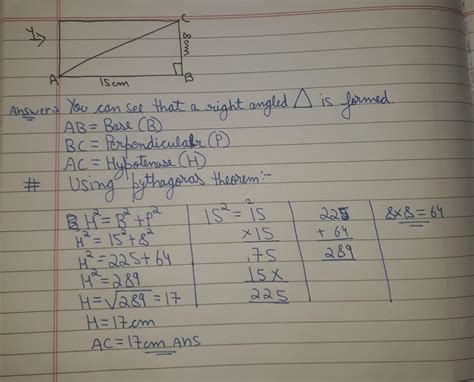 Y→
C
8cm
A
15cm
B
Answer→ You can see that a right angled △ is formed.
AB = Base (B)
BC = Perpendicular (P)
AC = Hypotenuse (H)
# Using pythagoras theorem:-
H² = B² + P²
H² = 15² + 8²
H² = 225 + 64
H² = 289
H = √289 = 17
H = 17cm
AC = 17cm Ans
15² = 15
×15
75
15×
225
225
+ 64
289
8×8 = 64